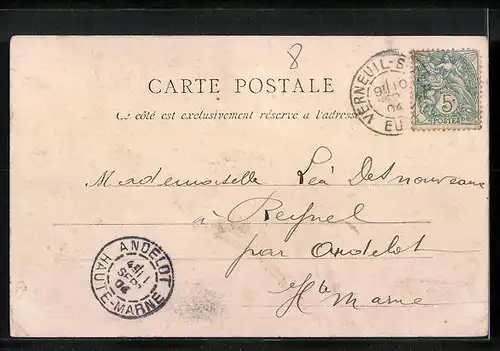 8
CARTE POSTALE
Ce côté est exclusivement réservé à l'adresse
VERNEUIL-S
SEP
04
EU
5c
POSTES
Mademoiselle Léa Desnouveaux
à Reynel
par Andelot
Hte Marne
ANDELOT
SEP
04
HAUTE-MARNE